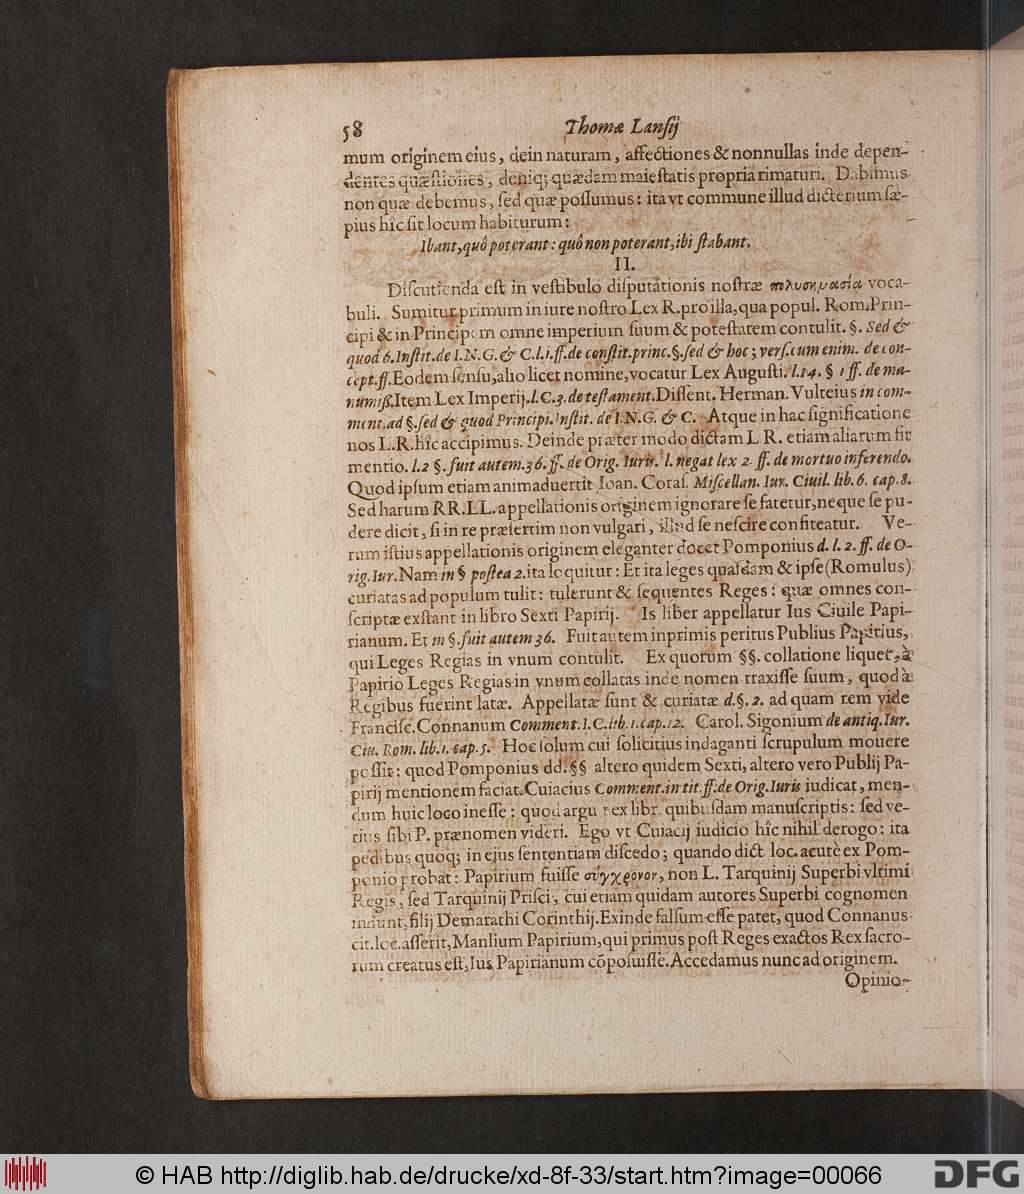 58 Thomæ Lansij
mum originem eius, dein naturam, affectiones & nonnullas inde depen-
dentes quæstiones, deniq; quædam maiestatis propria rimaturi. Dabimus
non quæ debemus, sed quæ possumus: ita vt commune illud dicterium sæ-
pius hîc sit locum habiturum:
Ibant, quô poterant: quô non poterant, ibi stabant.
II.
Discutienda est in vestibulo disputationis nostræ πολυσημασία voca-
buli. Sumitur primum in iure nostro Lex R. pro illa, qua popul. Rom. Prin-
cipi & in Principem omne imperium suum & potestatem contulit. §. Sed &
quod 6. Instit. de I. N. G. & C. l. 1. ff. de constit. princ. §. sed & hoc; vers. cum enim. de con-
cept. ff. Eodem sensu, alio licet nomine, vocatur Lex Augusti. l. 14. § 1 ff. de ma-
numiss. Item Lex Imperij. l. C. 3. de testament. Dissent. Herman. Vulteius in com-
ment. ad §. sed & quod Principi. Instit. de I. N. G. & C. Atque in hac significatione
nos L. R. hîc accipimus. Deinde præter modo dictam L R. etiam aliarum fit
mentio. l. 2 §. fuit autem. 36. ff. de Orig. Iuris. l. negat lex 2. ff. de mortuo inferendo.
Quod ipsum etiam animaduertit Ioan. Coras. Miscellan. Iur. Ciuil. lib. 6. cap. 8.
Sed harum RR. LL. appellationis originem ignorare se fatetur, neque se pu-
dere dicit, si in re præsertim non vulgari, illud se nescire confiteatur. Ve-
rum istius appellationis originem eleganter docet Pomponius d. l. 2. ff. de O-
rig. Iur. Nam in § postea 2. ita loquitur: Et ita leges quasdam & ipse (Romulus)
curiatas ad populum tulit: tulerunt & sequentes Reges: quæ omnes con-
scriptæ exstant in libro Sexti Papirij. Is liber appellatur Ius Ciuile Papi-
rianum. Et in §. fuit autem 36. Fuit autem inprimis peritus Publius Papirius,
qui Leges Regias in vnum contulit. Ex quorum §§. collatione liquet, à
Papirio Leges Regias in vnum collatas inde nomen traxisse suum, quod à
Regibus fuerint latæ. Appellatæ sunt & curiatæ d. §. 2. ad quam rem vide
Francisc. Connanum Comment. I. C. lib. 1. cap. 12. Carol. Sigonium de antiq. Iur.
Ciu. Rom. lib. 1. cap. 5. Hoc solum cui solicitius indaganti scrupulum mouere
possit: quod Pomponius dd. §§ altero quidem Sexti, altero vero Publij Pa-
pirij mentionem faciat. Cuiacius Comment. in tit. ff. de Orig. Iuris iudicat, men-
dum huic loco inesse: quod arguit ex libr. quibusdam manuscriptis: sed ve-
rius sibi P. prænomen videri. Ego vt Cuiacij iudicio hîc nihil derogo: ita
pedibus quoq; in ejus sententiam discedo; quando dict loc. acutè ex Pom-
ponio probat: Papirium fuisse σύγχρονον, non L. Tarquinij Superbi vltimi
Regis, sed Tarquinij Prisci, cui etiam quidam autores Superbi cognomen
indunt, filij Demarathi Corinthij. Exinde falsum esse patet, quod Connanus
cit. loc. asserit, Manlium Papirium, qui primus post Reges exactos Rex sacro-
rum creatus est, Ius Papirianum cõposuisse. Accedamus nunc ad originem.
Opinio-
© HAB http://diglib.hab.de/drucke/xd-8f-33/start.htm?image=00066
DFG